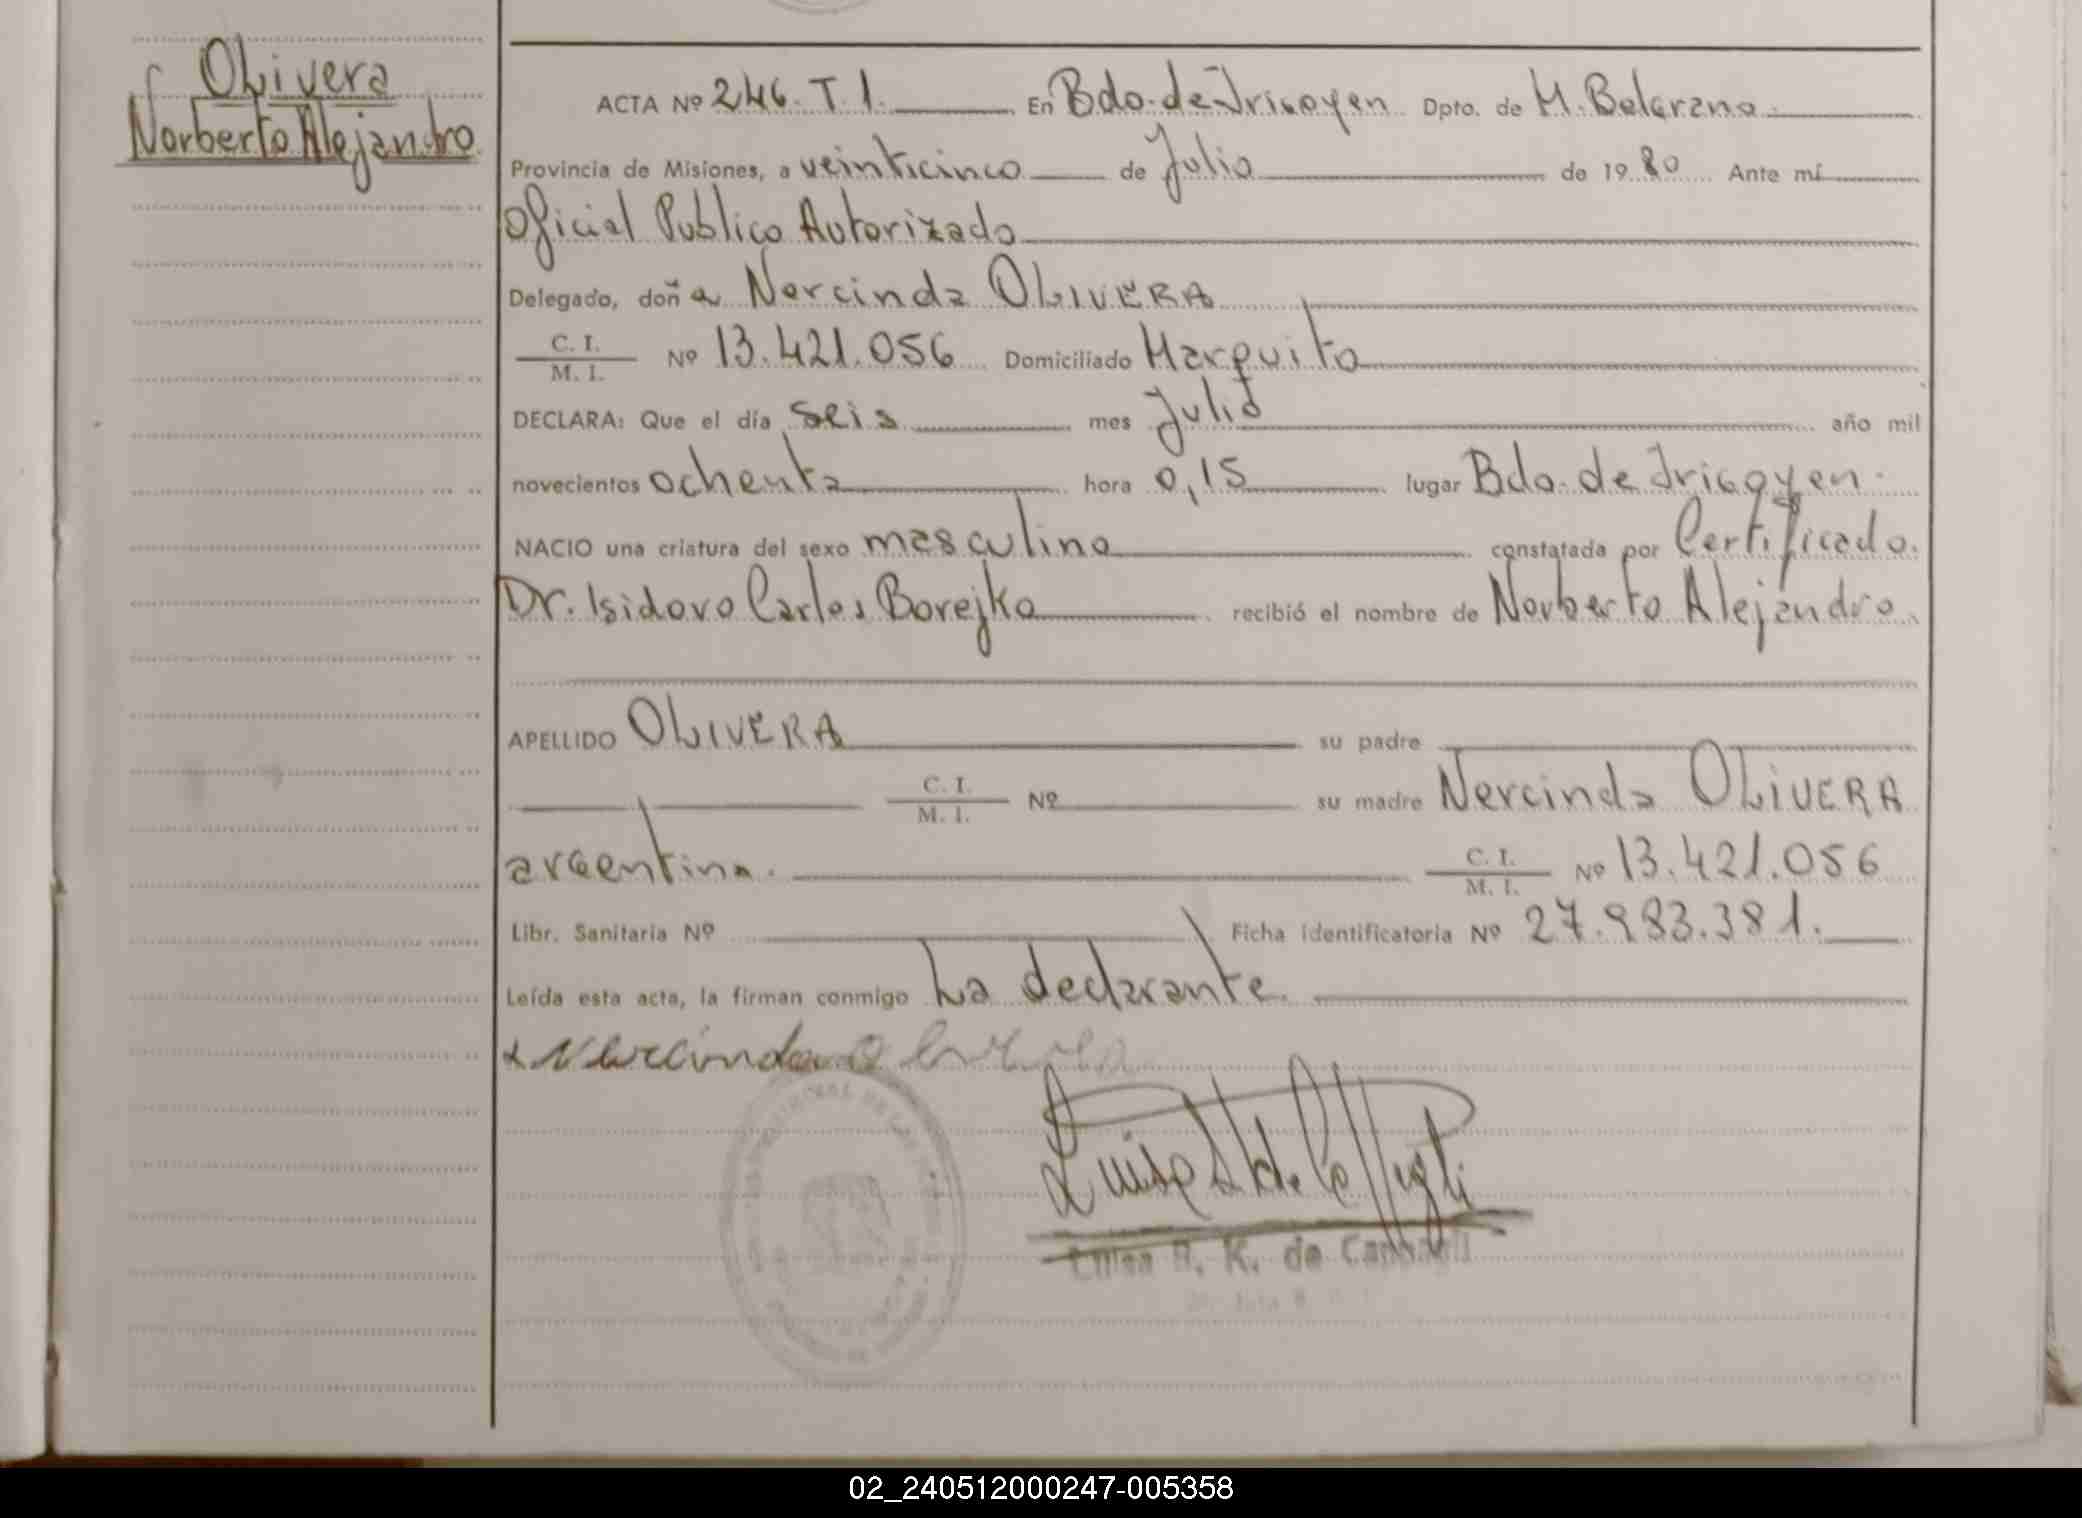 Olivera
Norberto Alejandro
ACTA Nº 246. T. 1. En Bdo. de Irigoyen Dpto. de M. Belgrano
Provincia de Misiones, a veinticinco de Julio de 1980 Ante mí
Oficial Publico Autorizado
Delegado, doña Nercinda OLIVERA
C. I.
M. I.
Nº 13.421.056 Domiciliado Marquito
DECLARA: Que el día seis mes Julio año mil
novecientos ochenta hora 0,15 lugar Bdo. de Irigoyen.
NACIO una criatura del sexo masculino constatada por Certificado.
Dr. Isidoro Carlos Borejko recibió el nombre de Norberto Alejandro.
APELLIDO OLIVERA su padre
C. I.
M. I.
Nº su madre Nercinda OLIVERA
argentina.
C. I.
M. I.
Nº 13.421.056
Libr. Sanitaria Nº Ficha identificatoria Nº 27.983.381.
Leída esta acta, la firman conmigo La declarante.
x Nercinda Olivera
Luisa K. de
02_240512000247-005358